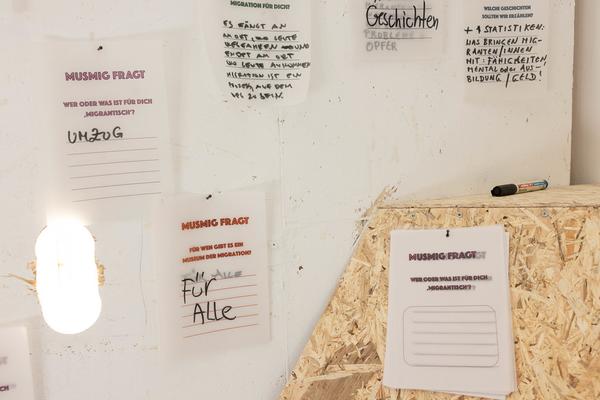 MIGRATION FÜR DICH?
ES FÄNGT AN
AM ORT, WO LEUTE
WEGFAHREN UND
ENDET AM ORT
WO LEUTE ANKOMMEN
MIGRATION IST EIN
Geschichten
PROBLEME
OPFER
WELCHE GESCHICHTEN
SOLLTEN WIR ERZÄHLEN?
+ 4 STATISTIKEN:
WAS BRINGEN MIG-
RANTEN/INNEN
MIT: FÄHIGKEITEN,
MENTAL oder AUS-
BILDUNG / GELD!
MUSMIG FRAGT
WER ODER WAS IST FÜR DICH
„MIGRANTISCH“?
UMZUG
MUSMIG FRAGT
FÜR WEN GIBT ES EIN
MUSEUM DER MIGRATION?
FÜR ALLE
Für
Alle
MUSMIG FRAGT
WER ODER WAS IST FÜR DICH
„MIGRANTISCH“?